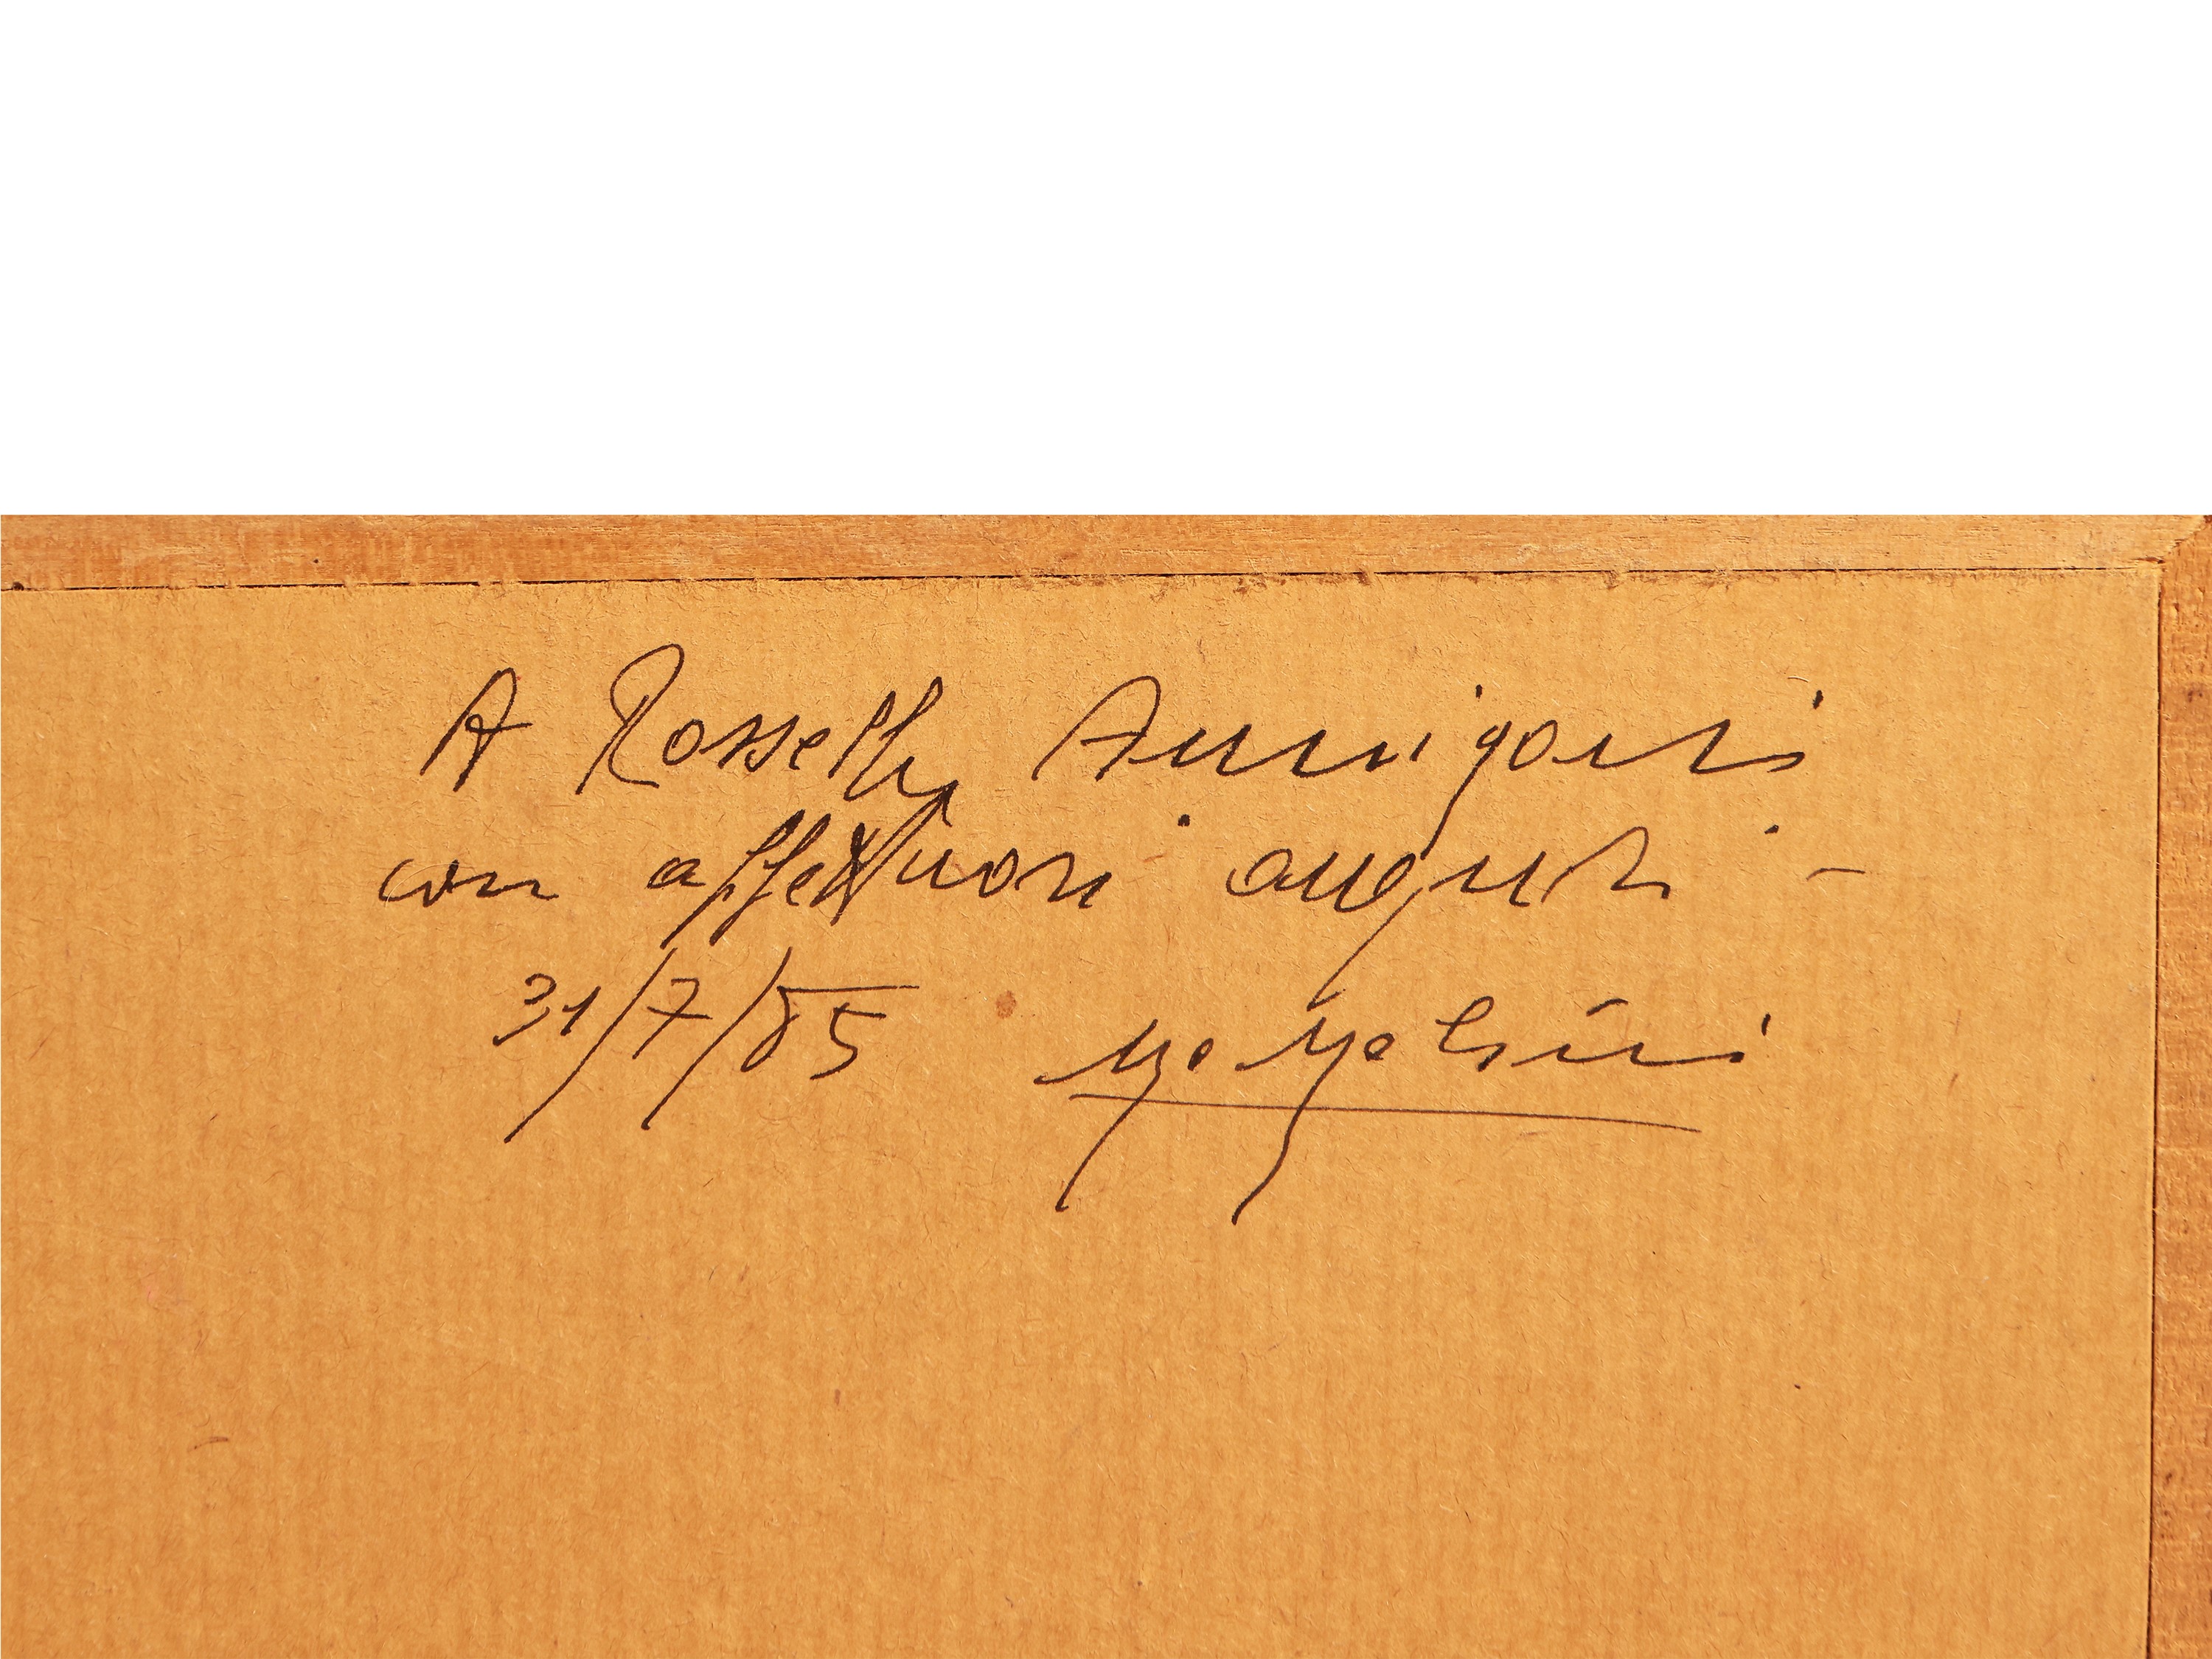 A Rossella Annigoni
con affettuosi auguri -
31/7/85